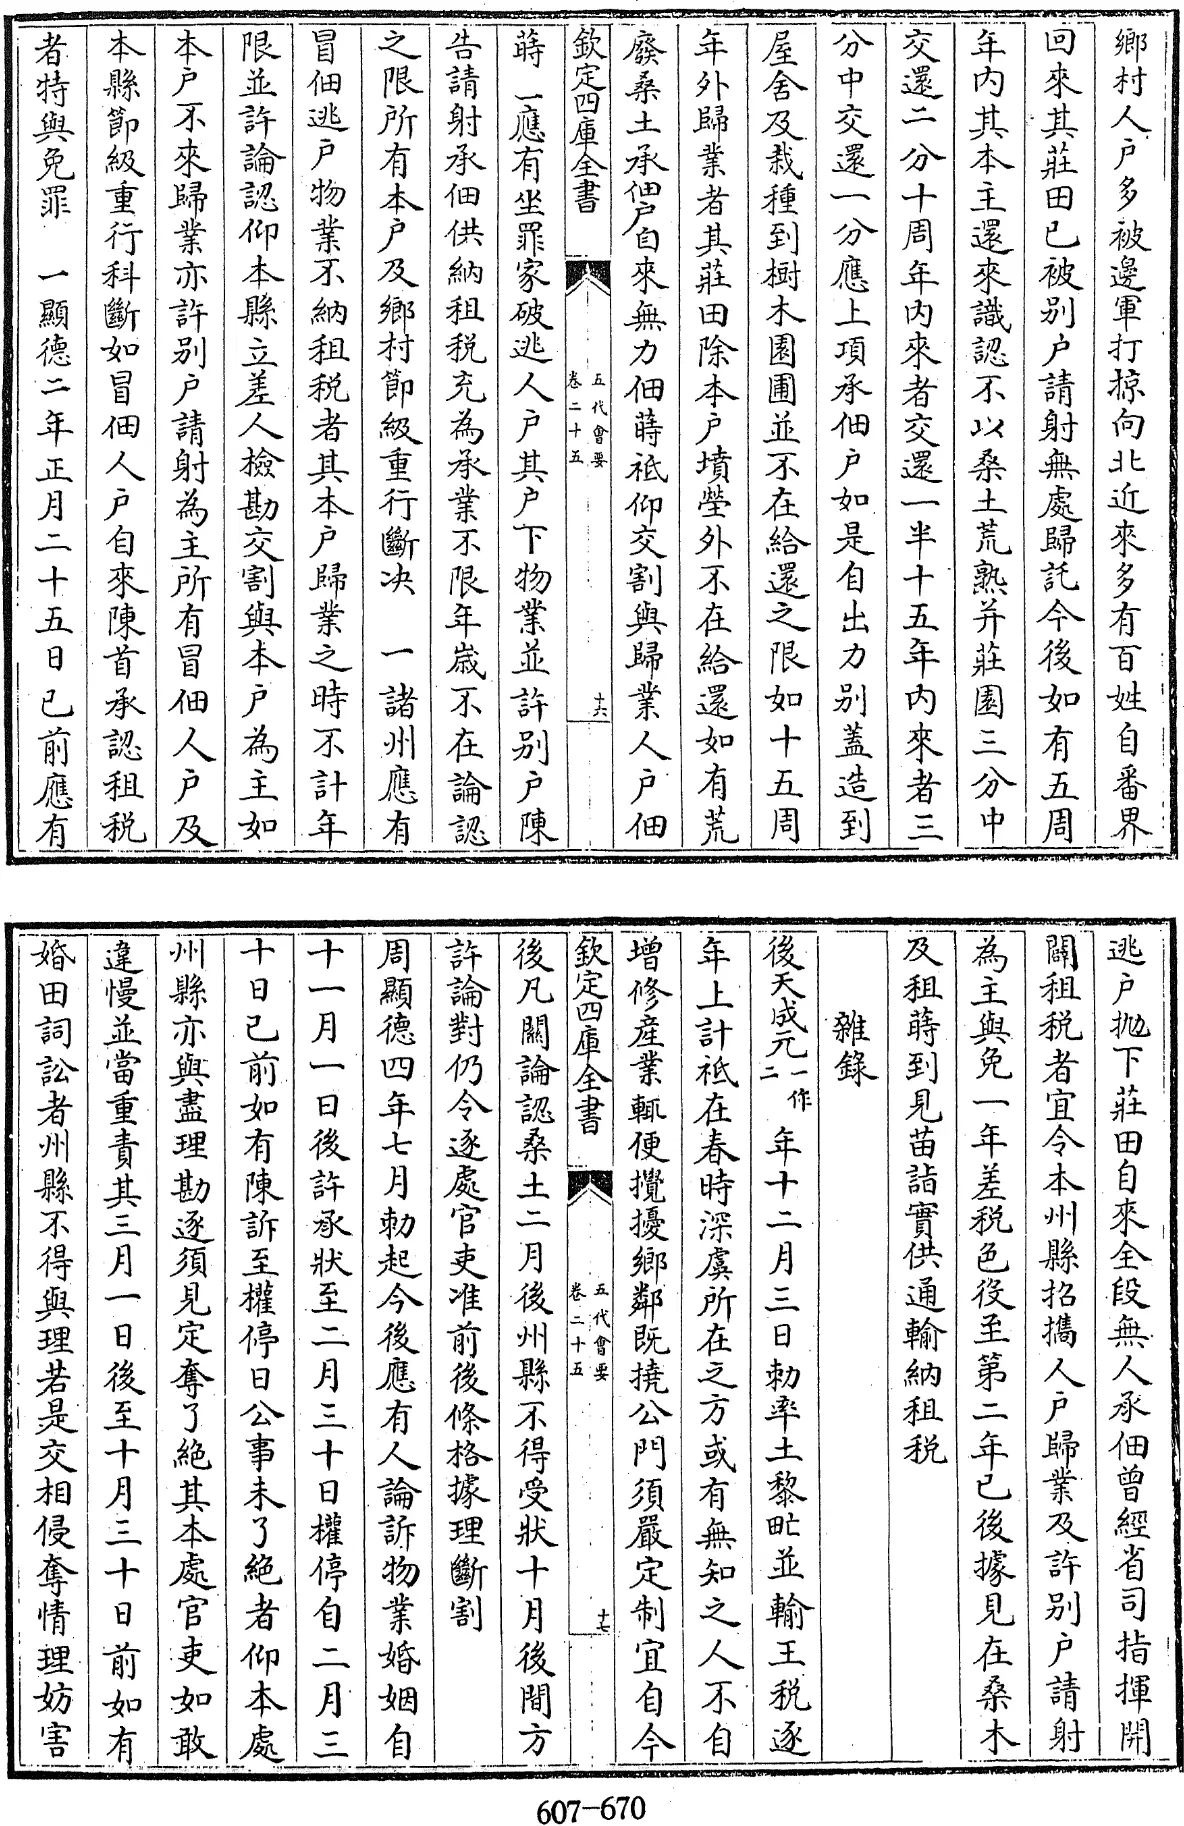 鄉村人户多被邊軍打掠向北近來多有百姓自番界
回來其莊田已被别户請射無處歸託今後如有五周
年内其本主還來識認不以桑土荒熟并莊園三分中
交還二分十周年内來者交還一半十五年内來者三
分中交還一分應上項承佃户如是自出力别蓋造到
屋舍及栽種到樹木園圃並不在給還之限如十五周
年外歸業者其莊田除本户墳塋外不在給還如有荒
廢桑土承佃户自來無力佃蒔祗仰交割與歸業人户佃
欽定四庫全書
五代會要
卷二十五
十六
蒔 一應有坐罪家破逃人户其户下物業並許别户陳
告請射承佃供納租税充為承業不限年嵗不在論認
之限所有本户及鄉村節級重行斷决 一諸州應有
冒佃逃户物業不納租税者其本户歸業之時不計年
限並許論認仰本縣立差人檢勘交割與本户為主如
本户不來歸業亦許别户請射為主所有冒佃人户及
本縣節級重行科斷如冒佃人户自來陳首承認租税
者特與免罪 一顯德二年正月二十五日已前應有
逃户抛下莊田自來全段無人承佃曾經省司指揮開
闢租税者宜令本州縣招攜人户歸業及許别户請射
為主與免一年差税色役至第二年已後據見在桑木
及租蒔到見苗詣實供通輸納租税
雜錄
後天成元一作二年十二月三日勅率土黎甿並輸王税逐
年上計祗在春時深虞所在之方或有無知之人不自
增修産業輒便攪擾鄉鄰既撓公門須嚴定制宜自今
欽定四庫全書
五代會要
卷二十五
十七
後凡關論認桑土二月後州縣不得受狀十月後間方
許論對仍令逐處官吏准前後條格據理斷割
周顯德四年七月勅起今後應有人論訴物業婚姻自
十一月一日後許承狀至二月三十日權停自二月三
十日已前如有陳訴至權停日公事未了絶者仰本處
州縣亦與盡理勘逐須見定奪了絶其本處官吏如敢
違慢並當重責其三月一日後至十月三十日前如有
婚田詞訟者州縣不得與理若是交相侵奪情理妨害
607-670